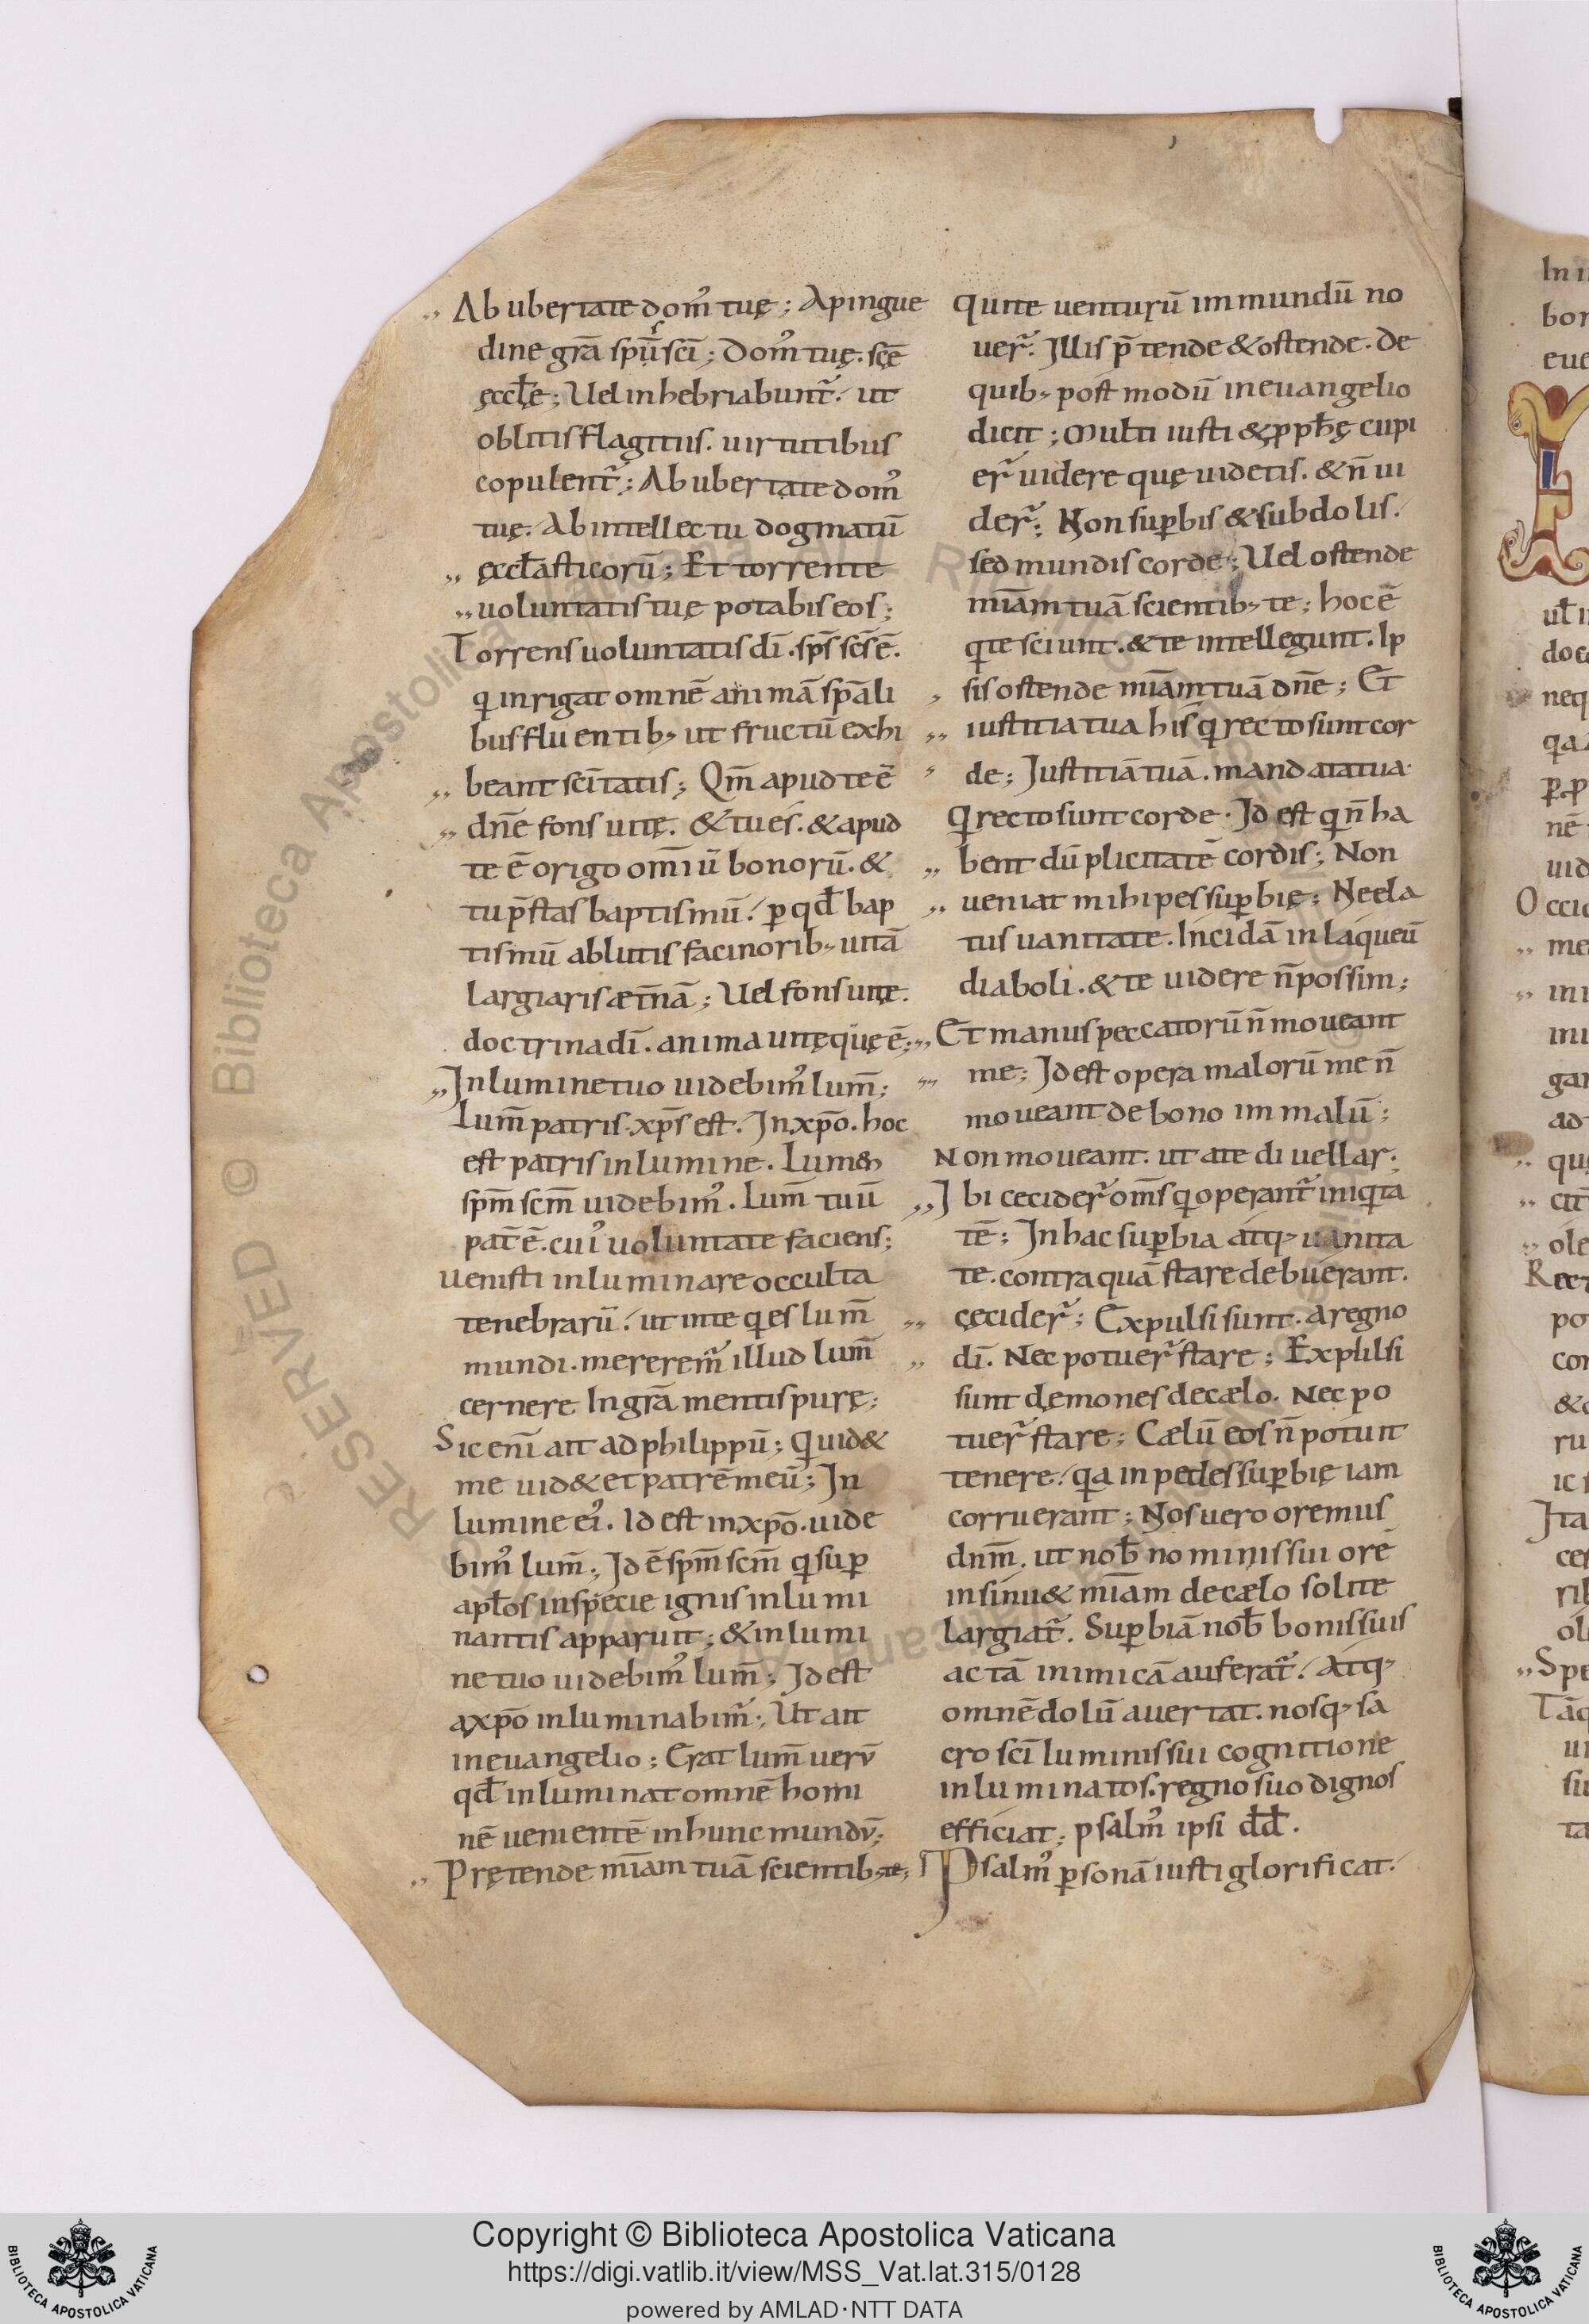 Ab ubertate dom᾿ tuę; A pingue
dine grā spūs sc̄i; Dom᾿ tuę. scę̄
ęccłę; Uel inhebriabunt᷑. ut
oblitis flagitiis. uirtutibus
copulent᷑; Ab ubertate dom᾿
tuę. Ab intellectu dogmatū
ęccl̄asticorū; Et torrente
uoluntatis tuę potabis eos;
Torrens uoluntatis dī. sps̄ scs̄ ē.
q inrigat omnē animā spāli
bus fluentib; ut fructū exhi
beant sc̄itatis; Qm̄ apud te ē
dn̄e fons uitę. & tu es. & apud
te ē origo om̄iū bonorū. &
tu p̄stas baptismū. ꝑ qd̄ bap
tismū ablutis facinorib; uitā
largiaris æt̄nā; Uel fons uitę.
doctrina dī. anima uitę quę ē;
In lumine tuo uidebim᾿ lum̄;
Lum̄ patris. xp̄s est. In xp̄o. hoc
est patris in lumine. Lumen
spm̄ scm̄ uidebim᾿. Lum̄ tuū
pat̄ ē. cui᾿ uoluntate faciens;
uenisti inluminare occulta
tenebrarū. ut in te q es lum̄
mundi. mererem᷑ illud lum̄
cernere In grā mentis purę;
Sic eni᷑ ait ad philippū; Quid&
me uid& et patrē meū; In
lumine ei᾿. Id est in xp̄o. uide
bim᾿ lum̄; Id ē spm̄ scm̄ q sup̱
apl̄os in specie ignis inlumi
nantis apparuit; & in lumi
ne tuo uidebim᾿ lum̄; Id est
a xp̄o inluminabim᷑; Ut ait
in euangelio; Erat lum̄ uerū
qd̄ inluminat omnē homi
nē uenientē in hunc mundū;
Prętende mīam tuā scientib; te;
Qui te venturū in mundū no
uer᷑. Illis p̄tende & ostende. De
quib; post modū in euangelio
dicit; Multi iusti & ꝓph̄ę cupi
er᷑ uidere quę uidetis. & n̄ ui
der᷑; Non suꝑbis & subdolis.
sed mundis corde; Uel ostende
mīam tuā scientib; te; hoc ē
q te sciunt. & te intellegunt. Ip
sis ostende mīam tuā dn̄e; Et
iustitia tua his q recto sunt cor
de; Iustitiā tuā. mandata tua
Q recto sunt corde. Id est q n̄ ha
bent dūplicitatē cordis; Non
ueniat mihi pes suꝑbię; Ne ela
tus uanitate. Incidā in laqueū
diaboli. & te uidere n̄ possim;
Et manus peccatorū n̄ moueant
me; Id est opera malorū me n̄
moueant de bono im malū;
Non moueant. ut a te diuellar;
Ibi cecider᷑ om̄s q operant᷑ iniqita
tē; In hac suꝑbia atq; uanita
te. contra quā stare debuerant.
cęcider᷑; Expulsi sunt. a regno
dī. Nec potuer᷑ stare; Expulsi
sunt dęmones de cælo. Nec po
tuer᷑ stare; Cælū eos n̄ potuit
tenere. qa in pedes suꝑbię iam
corruerant; Nos uero oremus
dnm̄. ut nob̄ nominis sui orē
insinu& mīam de cælo solite
largiat᷑. Suꝑbiā nob̄ bonis suis
actā inimicā auferat᷑. Atq;
omnē dolū auertat. nosq; sa
cro sc̄i luminis sui cognitione
inluminatos. regno suo dignos
efficiat; psalm᾿ ipsi dd̄.
Psalm᾿ ꝑsonā iusti glorificat.
Copyright © Biblioteca Apostolica Vaticana
https://digi.vatlib.it/view/MSS_Vat.lat.315/0128
powered by AMLAD·NTT DATA